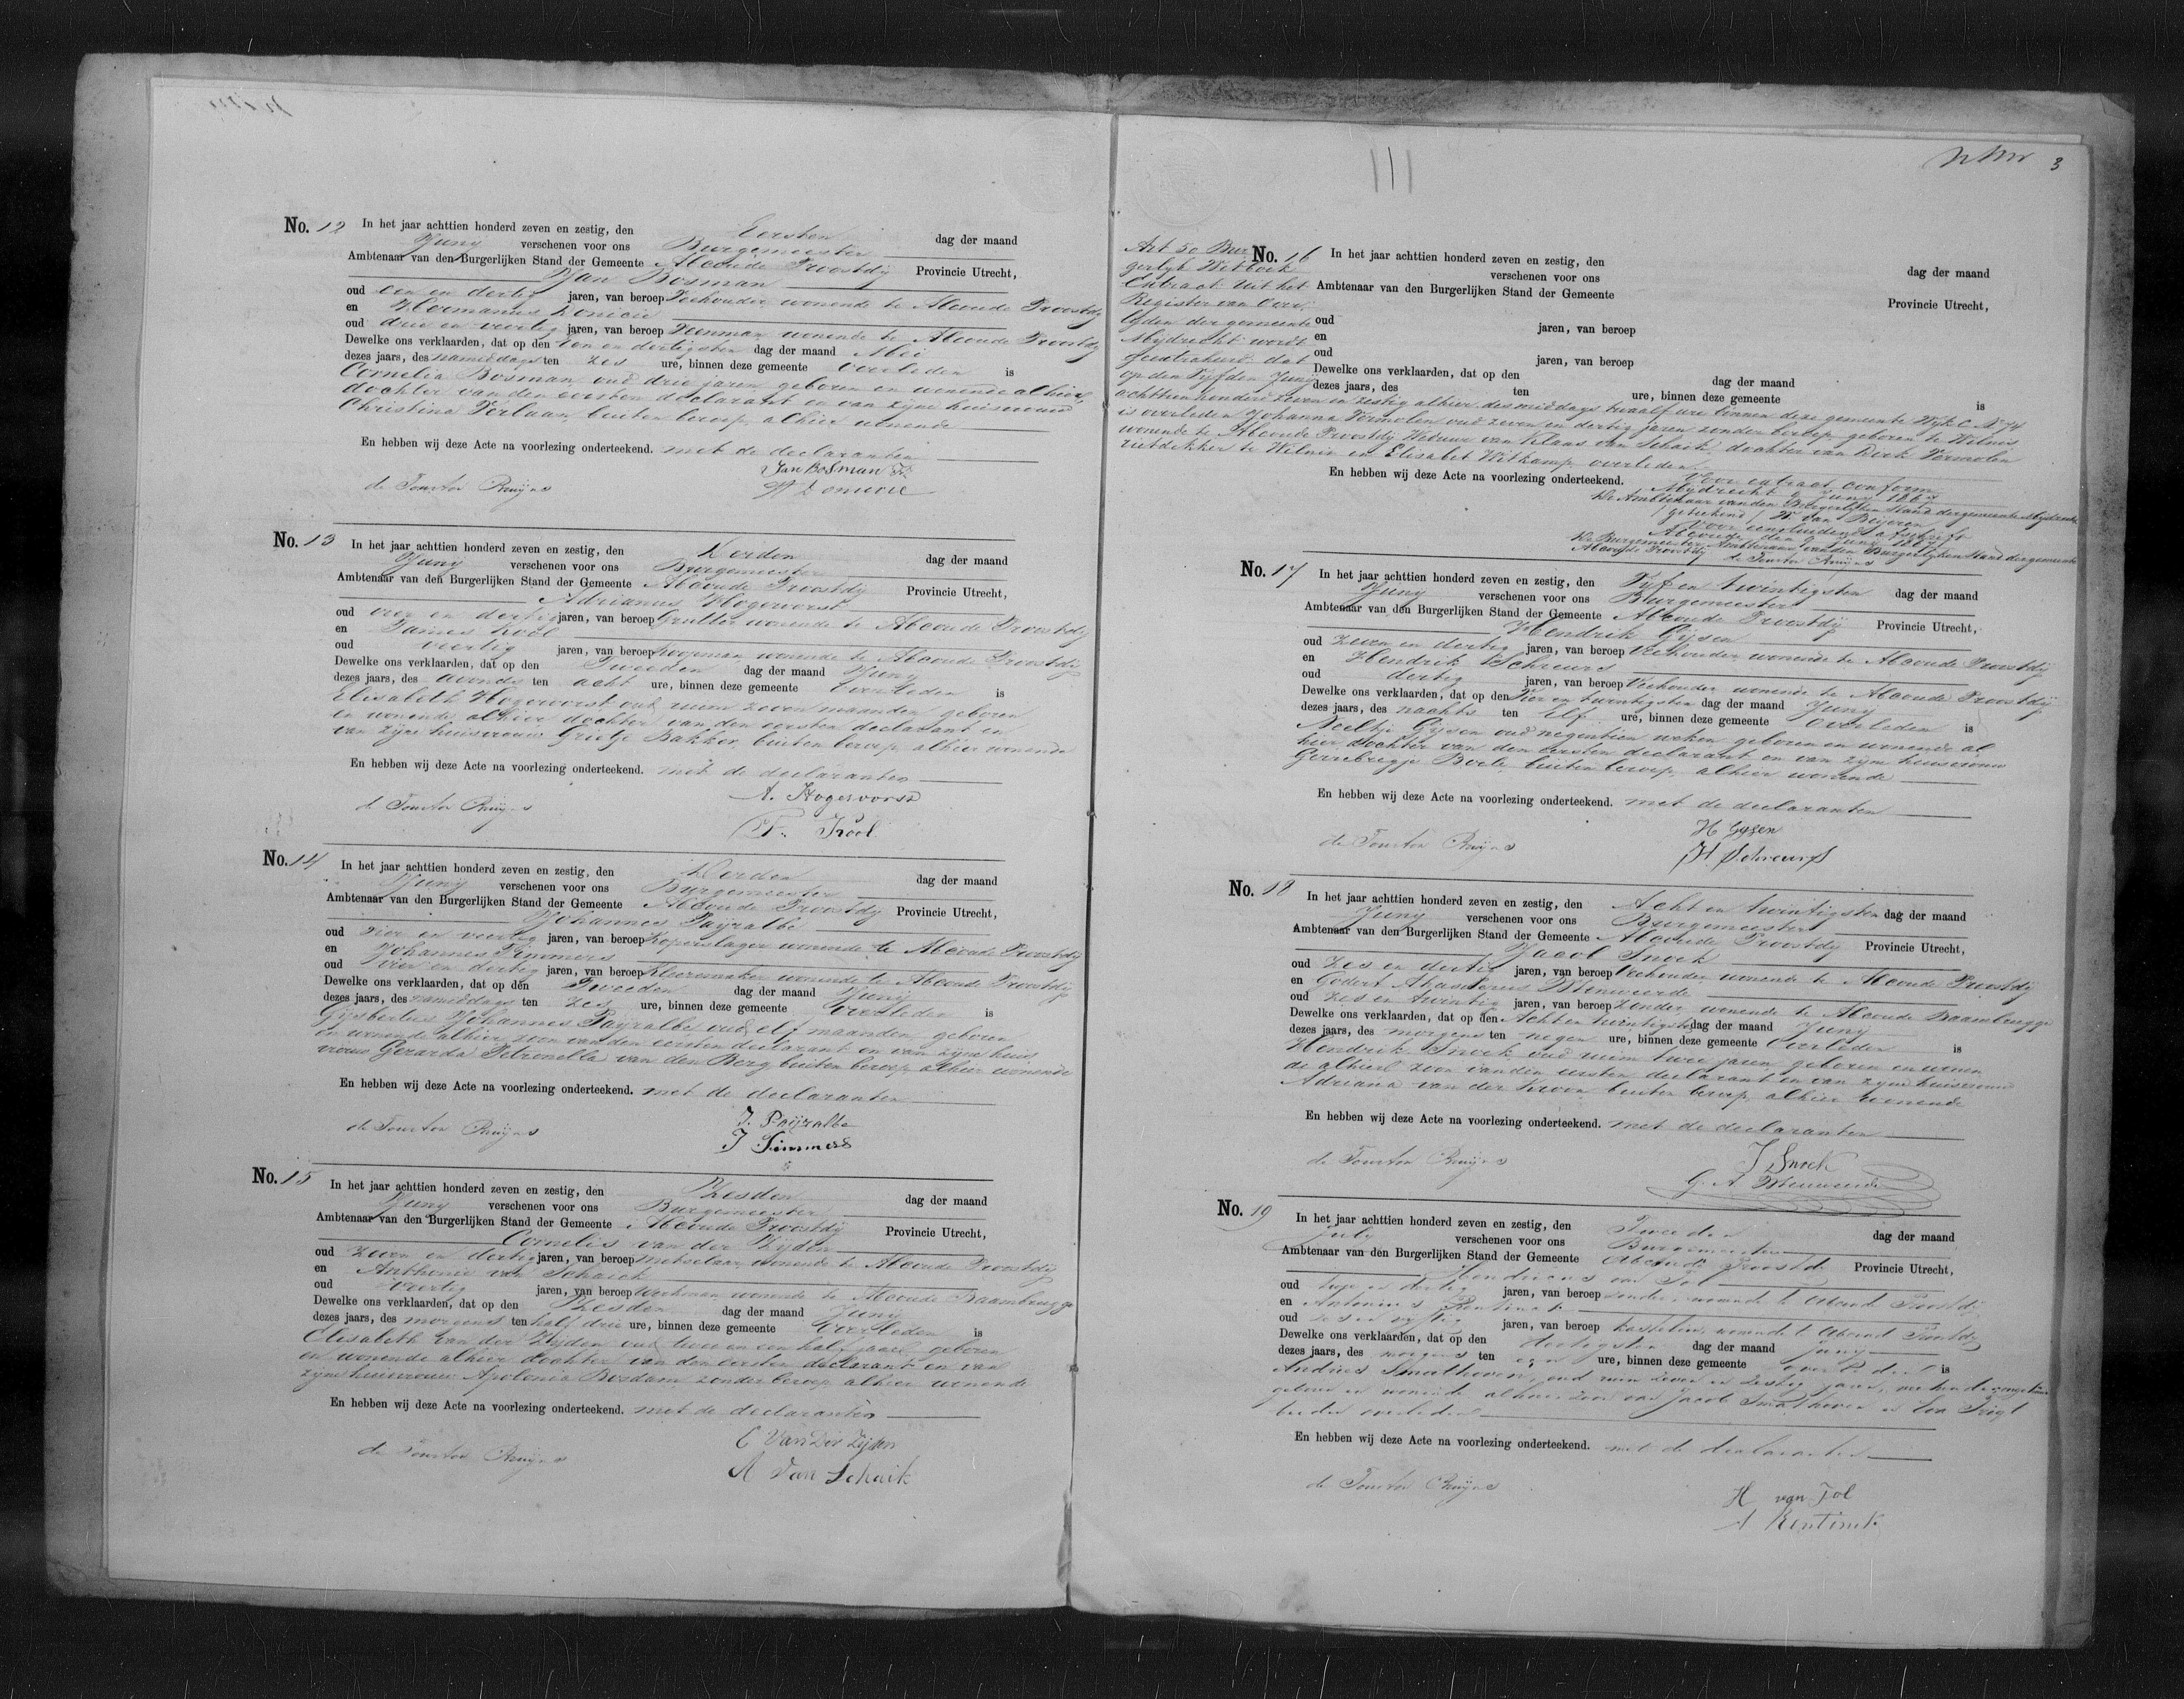 No. 12 In het jaar achttien honderd zeven en zestig, den Eersten dag der maand
Juny verschenen voor ons Burgemeester
Ambtenaar van den Burgerlijken Stand der Gemeente Abcoude Proostdij Provincie Utrecht,
Jan Bosman
oud een en dertig jaren, van beroep Veehouder wonende te Abcoude Proostdij
en Hermanus
oud drie en veertig jaren, van beroep Veenman wonende te Abcoude Proostdij
Dewelke ons verklaarden, dat op den een en dertigsten dag der maand Mei
dezes jaars, des namiddags ten zes ure, binnen deze gemeente overleden is
Cornelia Bosman, oud drie jaren geboren en wonende alhier,
dochter van den eersten declarant en van zijne huisvrouw
Christina Verlaan, buiten beroep, alhier wonende
En hebben wij deze Acte na voorlezing onderteekend. met de declaranten
Jan Bosman Jz
de Tourton Bruyns
No. 13 In het jaar achttien honderd zeven en zestig, den Derden dag der maand
Juny verschenen voor ons Burgemeester
Ambtenaar van den Burgerlijken Stand der Gemeente Abcoude Proostdij Provincie Utrecht,
Adrianus Hogervorst
oud vier en dertig jaren, van beroep Grutter wonende te Abcoude Proostdij
en Kool
oud veertig jaren, van beroep Koopman wonende te Abcoude Proostdij
Dewelke ons verklaarden, dat op den Tweeden dag der maand Juny
dezes jaars, des avonds ten acht ure, binnen deze gemeente overleden is
Elisabeth Hogervorst oud ruim zeven maanden, geboren
en wonende alhier dochter van den eersten declarant en
van zijne huisvrouw Grietje Bakker, buiten beroep, alhier wonende
En hebben wij deze Acte na voorlezing onderteekend. met de declaranten
A. Hogervorst
de Tourton Bruyns
Kool
No. 14 In het jaar achttien honderd zeven en zestig, den Derden dag der maand
Juny verschenen voor ons Burgemeester
Ambtenaar van den Burgerlijken Stand der Gemeente Abcoude Proostdij Provincie Utrecht,
Johannes Payralbe
oud Vier en veertig jaren, van beroep Koperslager wonende te Abcoude Proostdij
en Johannes Timmers
oud vier en dertig jaren, van beroep Kleermaker wonende te Abcoude Proostdij
Dewelke ons verklaarden, dat op den Tweeden dag der maand Juny
dezes jaars, des namiddags ten zes ure, binnen deze gemeente overleden is
Gijsbertus Johannes Payralbe oud elf maanden, geboren
en wonende alhier zoon van den eersten declarant en van zijne huis
vrouw Gerarda Petronella van den Berg buiten beroep alhier wonende
En hebben wij deze Acte na voorlezing onderteekend. met de declaranten
J. Payralbe
de Tourton Bruyns
J Timmers
No. 15 In het jaar achttien honderd zeven en zestig, den Zesden dag der maand
Juny verschenen voor ons Burgemeester
Ambtenaar van den Burgerlijken Stand der Gemeente Abcoude Proostdij Provincie Utrecht,
Cornelis van der Zijden
oud zeven en dertig jaren, van beroep Metselaar wonende te Abcoude Proostdij
en Anthonie van Schaick
oud veertig jaren, van beroep Werkman wonende te Abcoude Baambrugge
Dewelke ons verklaarden, dat op den Zesden dag der maand Juny
dezes jaars, des morgens ten half drie ure, binnen deze gemeente overleden is
Elisabeth van der Zijden oud twee en een half jaar, geboren
en wonende alhier dochter van den eersten declarant en van
zijne huisvrouw Apolonia Rosdam zonder beroep alhier wonende
En hebben wij deze Acte na voorlezing onderteekend. met de declaranten
C Van Der Zijden
de Tourton Bruyns
A Van Schaik
3
Art 50 Bur
gerlijk Wetboek
Extract uit het
Register van Over
lijden der gemeente
Mijdrecht wordt
geextraheerd: dat
op den Vyfden Junij
No. 16 In het jaar achttien honderd zeven en zestig, den dag der maand
verschenen voor ons
Ambtenaar van den Burgerlijken Stand der Gemeente Provincie Utrecht,
oud jaren, van beroep
en
oud jaren, van beroep
Dewelke ons verklaarden, dat op den dag der maand
dezes jaars, des ten ure, binnen deze gemeente is
achttien honderd zeven en zestig alhier des middags twaalf ure binnen deze gemeente Wyk C No 74
is overleden Johanna Vermolen oud zeven en dertig jaren zonder beroep geboren te Wilnis
wonende te Abcoude Proostdij Weduwe van Klaas van Schaik, dochter van Dirk Vermolen
rietdekker te Wilnis en Elisabet Witkamp overleden
En hebben wij deze Acte na voorlezing onderteekend. Voor extract conform
Mijdrecht Juny 1867
De Ambtenaar van den Burgerlijken Stand der gemeente Mijdrecht
(geteekend) van Beijeren
Voor eensluidend afschrift
Abcoude den Juny 1867
De Burgemeester Ambtenaar van den Burgerlijken Stand der gemeente
Abcoude Proostdij de Tourton Bruyns
No. 17 In het jaar achttien honderd zeven en zestig, den Vyf en twintigsten dag der maand
Juny verschenen voor ons Burgemeester
Ambtenaar van den Burgerlijken Stand der Gemeente Abcoude Proostdij Provincie Utrecht,
Hendrik Gijsen
oud zeven en dertig jaren, van beroep Veehouder wonende te Abcoude Proostdij
en Hendrik Schreurs
oud dertig jaren, van beroep Veehouder wonende te Abcoude Proostdij
Dewelke ons verklaarden, dat op den Vier en twintigsten dag der maand Juny
dezes jaars, des nachts ten elf ure, binnen deze gemeente overleden is
Neeltje Gijsen oud negentien weken geboren en wonende al
hier dochter van den eersten declarant en van zijne huisvrouw
Gerrebregje Boele, buiten beroep, alhier wonende
En hebben wij deze Acte na voorlezing onderteekend. met de declaranten
H Gijsen
de Tourton Bruyns
H. Schreurs
No. 18 In het jaar achttien honderd zeven en zestig, den Acht en twintigsten dag der maand
Juny verschenen voor ons Burgemeester
Ambtenaar van den Burgerlijken Stand der Gemeente Abcoude Proostdij Provincie Utrecht,
Jacob Snoek
oud zes en dertig jaren, van beroep Veehouder wonende te Abcoude Proostdij
en Godert
oud zes en twintig jaren, van beroep zonder, wonende te Abcoude Baambrugge
Dewelke ons verklaarden, dat op den Acht en twintigsten dag der maand Juny
dezes jaars, des morgens ten negen ure, binnen deze gemeente overleden is
Hendrik Snoek, oud ruim twee jaren, geboren en wonen
de alhier zoon van den eersten declarant en van zijne huisvrouw
Adriana van der Kroon buiten beroep, alhier wonende
En hebben wij deze Acte na voorlezing onderteekend. met de declaranten
J Snoek
de Tourton Bruyns
G. A.
No. 19 In het jaar achttien honderd zeven en zestig, den Tweeden dag der maand
July verschenen voor ons Burgemeester
Ambtenaar van den Burgerlijken Stand der Gemeente Abcoude Proostdij Provincie Utrecht,
Hendricus van Tol
oud twee en dertig jaren, van beroep zonder, wonende te Abcoude Proostdij
en Antonius Rentinck
oud zes en vyftig jaren, van beroep kastelein, wonende te Abcoude Proostdij
Dewelke ons verklaarden, dat op den dertigsten dag der maand Juny
dezes jaars, des morgens ten een ure, binnen deze gemeente overleden is
Andries Smalhoven, oud ruim zeven en zestig jaren,
geboren en wonende alhier zoon van Jacob Smalhoven en
beiden overleden
En hebben wij deze Acte na voorlezing onderteekend. met de declaranten
de Tourton Bruyns
H van Tol
A Rentinck